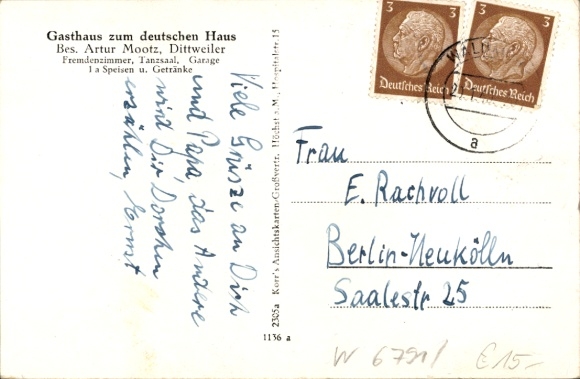 Gasthaus zum deutschen Haus
Bes. Artur Mootz, Dittweiler
Fremdenzimmer, Tanzsaal, Garage
I a Speisen u. Getränke
Viele Grüsze an Dich
und Papa, das Andere
wird Dir Dorchen
erzählen, Ernst
2305a Korr's Ansichtskarten-Großvertr. Höchst a.M., Hospitalstr 15
1136 a
3
3
Deutsches Reich
Deutsches Reich
a
Frau
E. Rachvoll
Berlin-Neukölln
Saalestr 25
W 6791/
€ 15.-